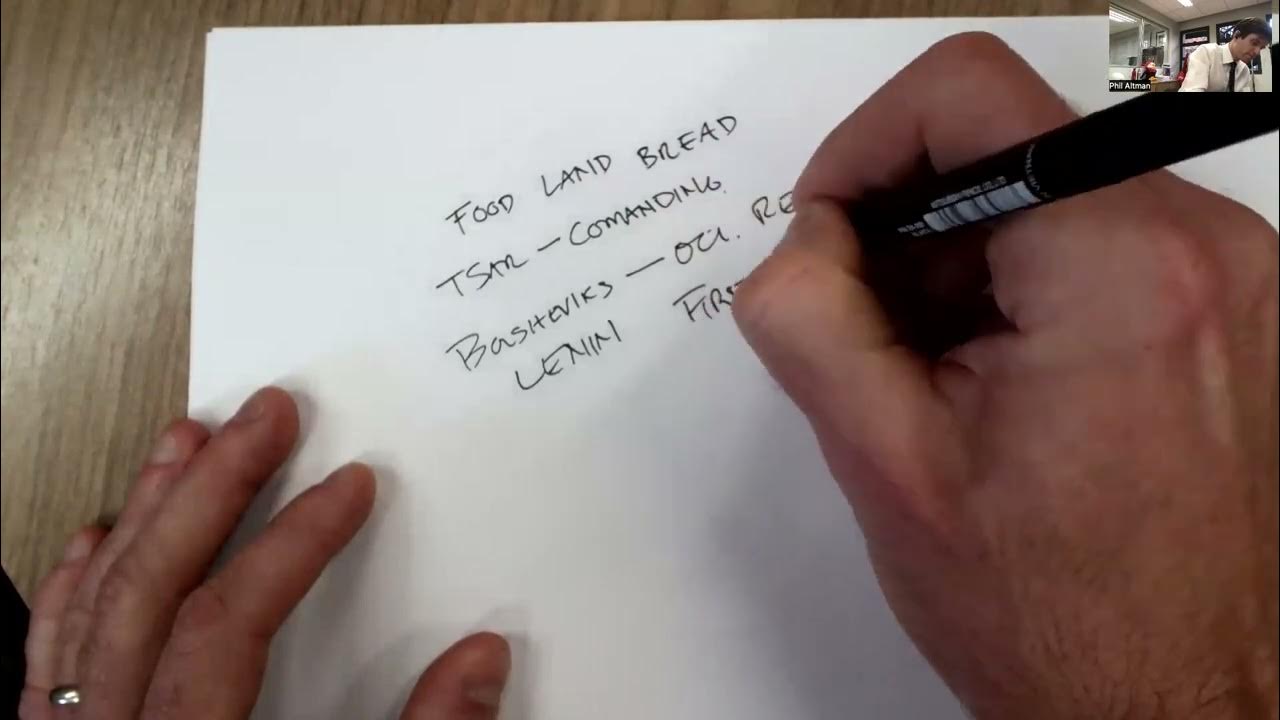 FOOD LAND BREAD
TSAR – COMANDING.
BOLSHEVIKS – OCT. RE
LENIN FIRST
Phil Altman